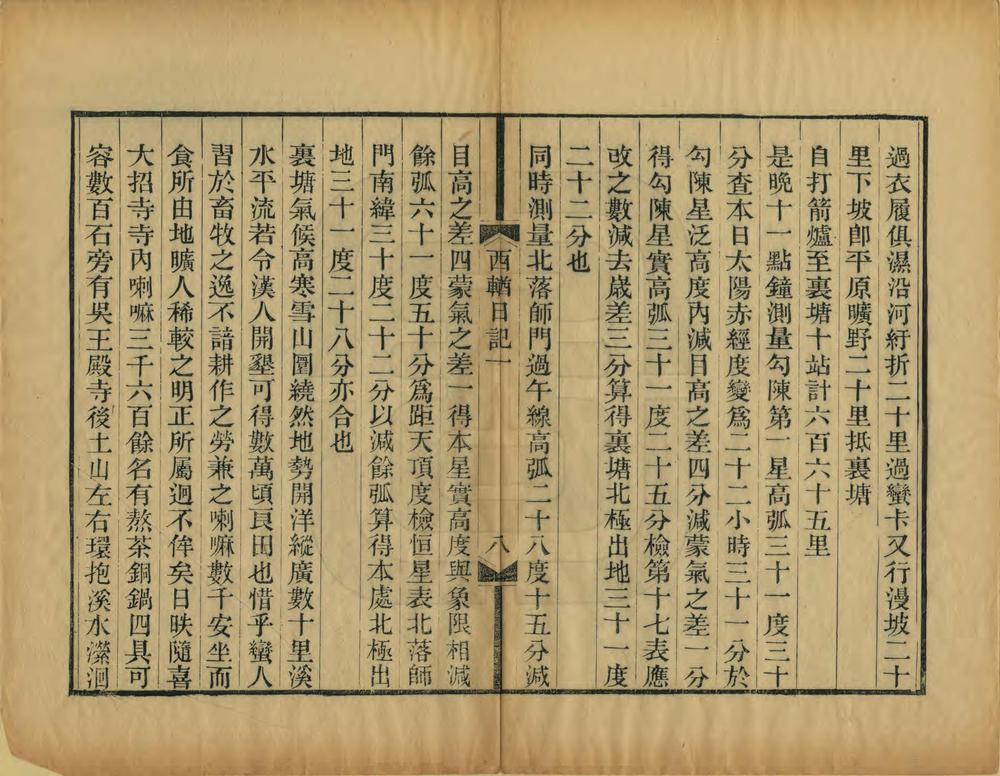 過衣履俱濕沿河紆折二十里過蠻卡又行漫坡二十
里下坡卽平原曠野二十里抵裏塘
自打箭爐至裏塘十站計六百六十五里
是晚十一點鐘測量勾陳第一星高弧三十一度三十
分查本日太陽赤經度變爲二十二小時三十一分於
勾陳星泛高度內減目高之差四分減蒙氣之差一分
得勾陳星實高弧三十一度二十五分檢第十七表應
改之數減去歲差三分算得裏塘北極出地三十一度
二十二分也
同時測量北落師門過午線高弧二十八度十五分減
西輶日記一
八
目高之差四蒙氣之差一得本星實高度與象限相減
餘弧六十一度五十分爲距天頂度檢恒星表北落師
門南緯三十度二十二分以減餘弧算得本處北極出
地三十一度二十八分亦合也
裏塘氣候高寒雪山圍繞然地勢開洋縱廣數十里溪
水平流若令漢人開墾可得數萬頃良田也惜乎蠻人
習於畜牧之逸不諳耕作之勞兼之喇嘛數千安坐而
食所由地曠人稀較之明正所屬迥不侔矣日昳隨喜
大招寺寺內喇嘛三千六百餘名有熬茶銅鍋四具可
容數百石旁有吳王殿寺後土山左右環抱溪水瀠洄